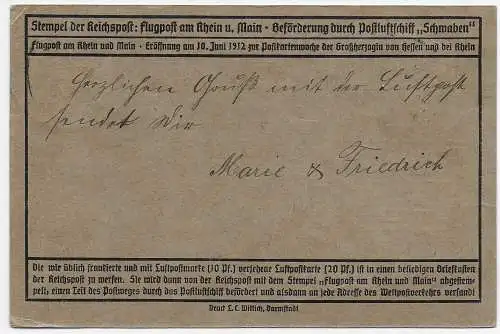 Stempel der Reichspost: Flugpost am Rhein u. Main - Beförderung durch Postluftschiff „Schwaben“
Flugpost am Rhein und Main - Eröffnung am 10. Juni 1912 zur Postkartenwoche der Großherzogin von Hessen und bei Rhein
Herzlichen Gruß mit der Luftpost
sendet Dir
Marie & Friedrich
Die wie üblich frankierte und mit Luftpostmarke (10 Pf.) versehene Luftpostkarte (20 Pf.) ist in einen beliebigen Briefkasten
der Reichspost zu werfen. Sie wird dann von der Reichspost mit dem Stempel „Flugpost am Rhein und Main“ abgestem-
pelt, einen Teil des Postweges durch das Postluftschiff befördert und alsdann an jede Adresse des Weltpostverkehrs versandt
Druck L. C. Wittich, Darmstadt